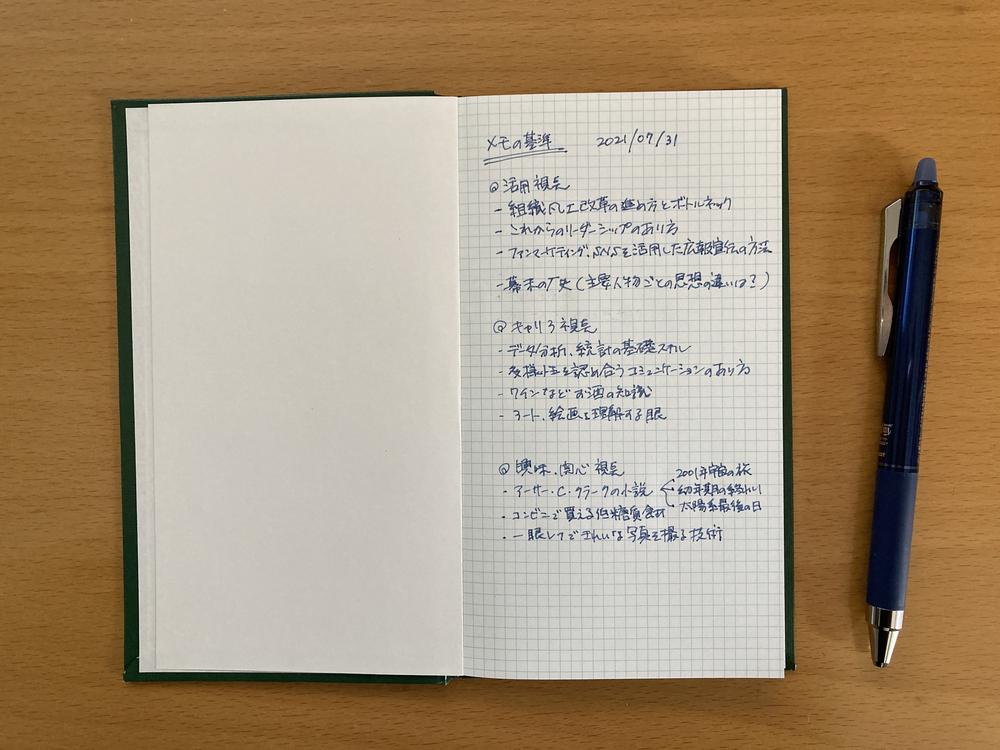 メモの基準 2021/07/31
@ 活用視点
- 組織風土改革の進め方とボトルネック
- これからのリーダーシップのあり方
- ファンマーケティング、SNSを活用した広報宣伝の方法
- 幕末の歴史（主要人物ごとの思想の違いは？）
@ キャリア視点
- データ分析、統計の基礎スキル
- 多様性を認め合うコミュニケーションのあり方
- ワインなどお酒の知識
- アート、絵画を理解する眼
@ 興味、関心視点
- アーサー・C・クラークの小説
2001年宇宙の旅
幼年期の終わり
太陽系最後の日
- コンビニで買える低糖質食材
- 一眼レフできれいな写真を撮る技術